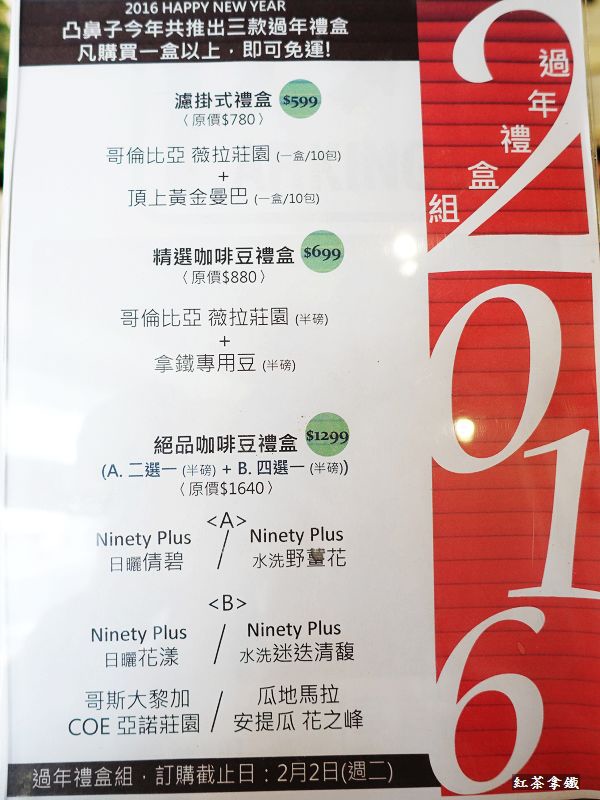 2016 HAPPY NEW YEAR
凸鼻子今年共推出三款過年禮盒
凡購買一盒以上，即可免運!
過年禮盒組
2016
濾掛式禮盒 $599
〈原價$780〉
哥倫比亞 薇拉莊園 (一盒/10包)
+
頂上黃金曼巴 (一盒/10包)
精選咖啡豆禮盒 $699
〈原價$880〉
哥倫比亞 薇拉莊園 (半磅)
+
拿鐵專用豆 (半磅)
絕品咖啡豆禮盒 $1299
(A. 二選一 (半磅) + B. 四選一 (半磅))
〈原價$1640〉
<A>
Ninety Plus / Ninety Plus
日曬倩碧 水洗野薑花
<B>
Ninety Plus / Ninety Plus
日曬花漾 水洗迷迭清馥
哥斯大黎加 / 瓜地馬拉
COE 亞諾莊園 安提瓜 花之峰
過年禮盒組，訂購截止日：2月2日(週二)
紅茶拿鐵